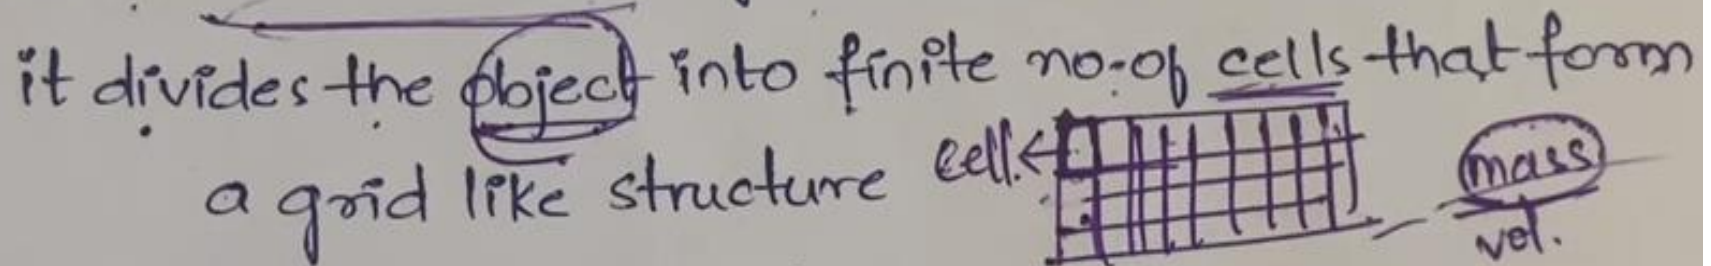 it divides the object into finite no. of cells that form
a grid like structure cell. mass
vol.